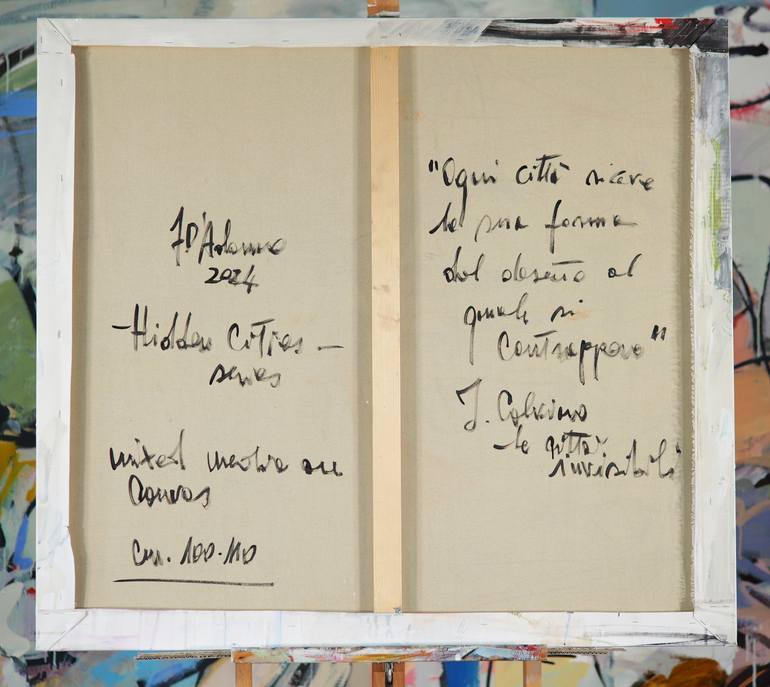 D'Adamo
2024
-Hidden Cities-
series
mixed media on
Canvas
cm. 100.110
"Ogni città riceve
la sua forma
dal deserto al
quale si
contrappone"
I. Calvino
le città
invisibili